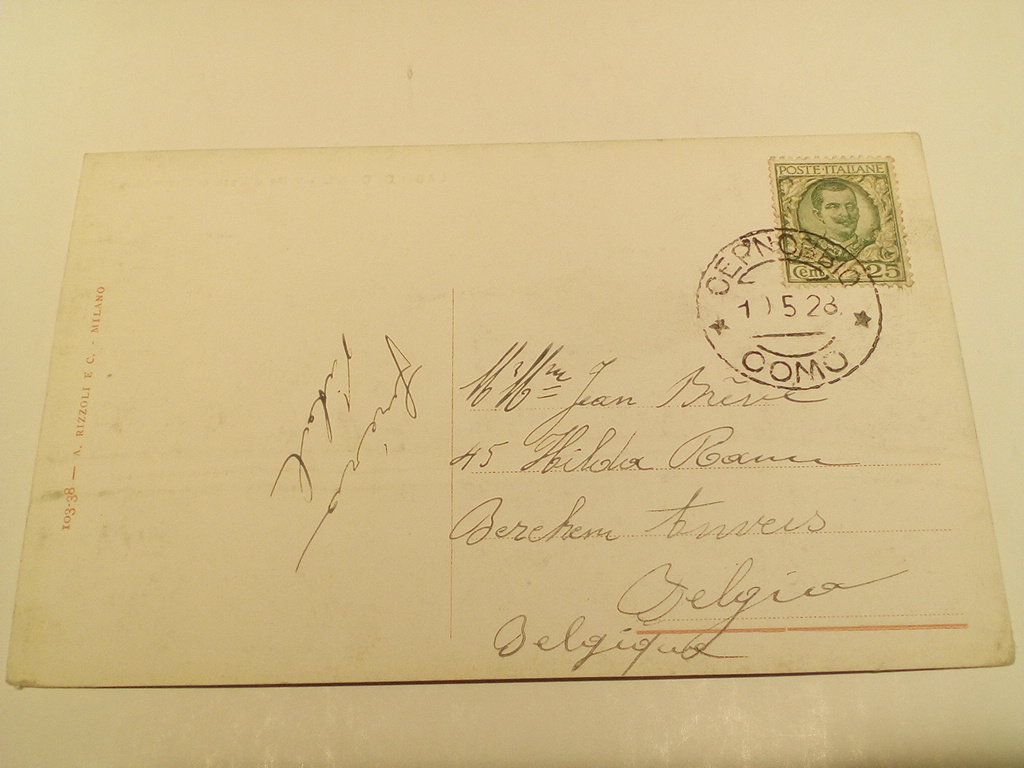 103-38 — A. RIZZOLI E C. - MILANO
POSTE·ITALIANE
Cent. 25
CERNOBBIO
COMO
Mr Mme Jean Brève
45 Hilda Ram
Berchem Anvers
Belgio
Belgique